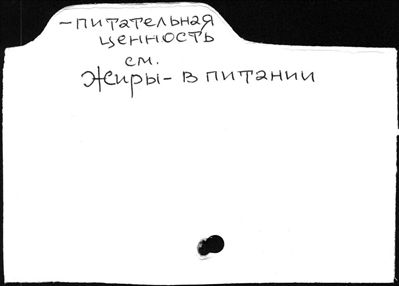 -питательная
ценность
см.
Жиры- в питании